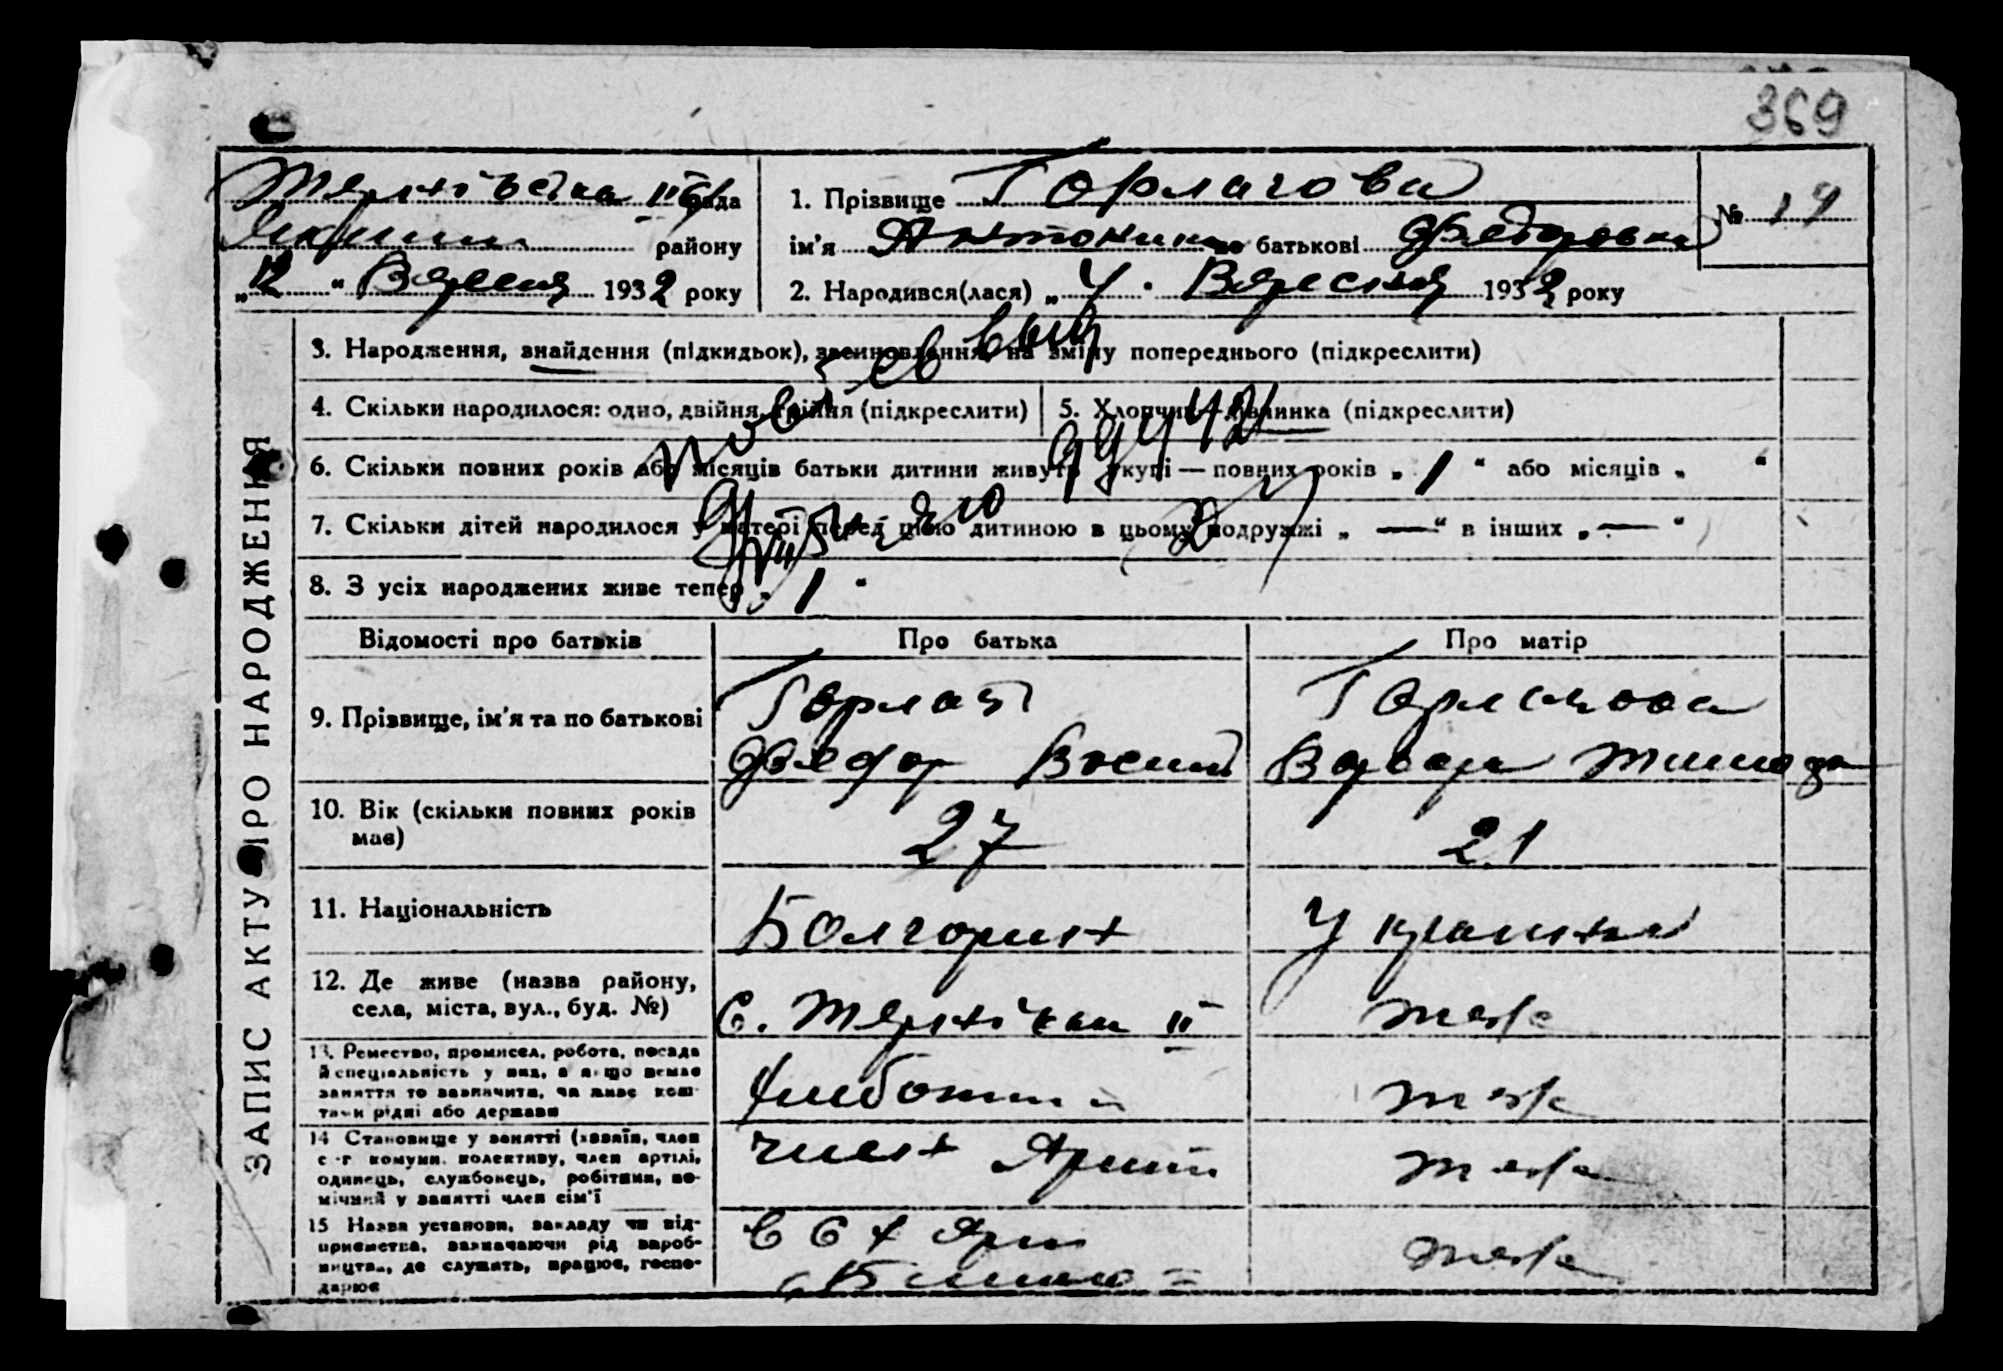 369
Тернівська IIга рада
району
„12“ Вересня 1932 року
1. Прізвище Горлачова
ім'я Антонина по батькові Федоровна
2. Народився(лася) „4“ Вересня 1932 року
№ 19
ЗАПИС АКТУ ПРО НАРОДЖЕННЯ
3. Народження, знайдення (підкидьок), всиновлення, на зміну попереднього (підкреслити)
4. Скільки народилося: одно, двійня, трійня (підкреслити)
5. Хлопчик, дівчинка (підкреслити)
6. Скільки повних років або місяців батьки дитини живуть укупі — повних років „1“ або місяців „ “
7. Скільки дітей народилося у матері перед цією дитиною в цьому подружжі „—“ в інших „—“
8. З усіх народжених живе тепер „1“
Відомості про батьків
Про батька
Про матір
9. Прізвище, ім'я та по батькові
Горлач
Федор Васил
Горлачова
Варвара
10. Вік (скільки повних років має)
27
21
11. Національність
Болгорин
Украинка
12. Де живе (назва району,
села, міста, вул., буд. №)
С. Тернівка II
теж
13. Ремество, промисел, робота, посада
й спеціальність у них, а якщо немає
заняття то зазначити, чи живе кош-
тами рідні або держави
теж
14 Становище у занятті (хазяїн, член
с.-г комуни, колективу, член артілі,
одинець, службовець, робітник, по-
мічний у занятті член сім'ї
член Артіл
теж
15 Назва установи, закладу чи під-
приємства, зазначаючи рід вироб-
ництва, де служить, працює, госпо-
дарює
теж